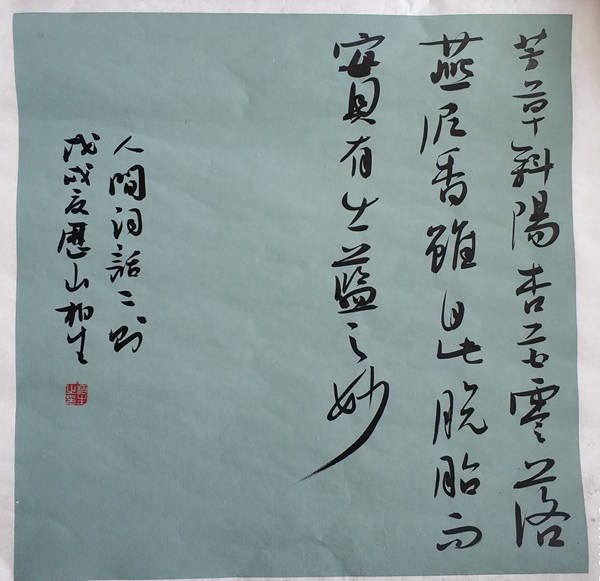 芳草斜陽杏花零落
燕泥香雖自此脱胎而
實有出藍之妙
人間詞話二則
戊戌夏歷山柏生